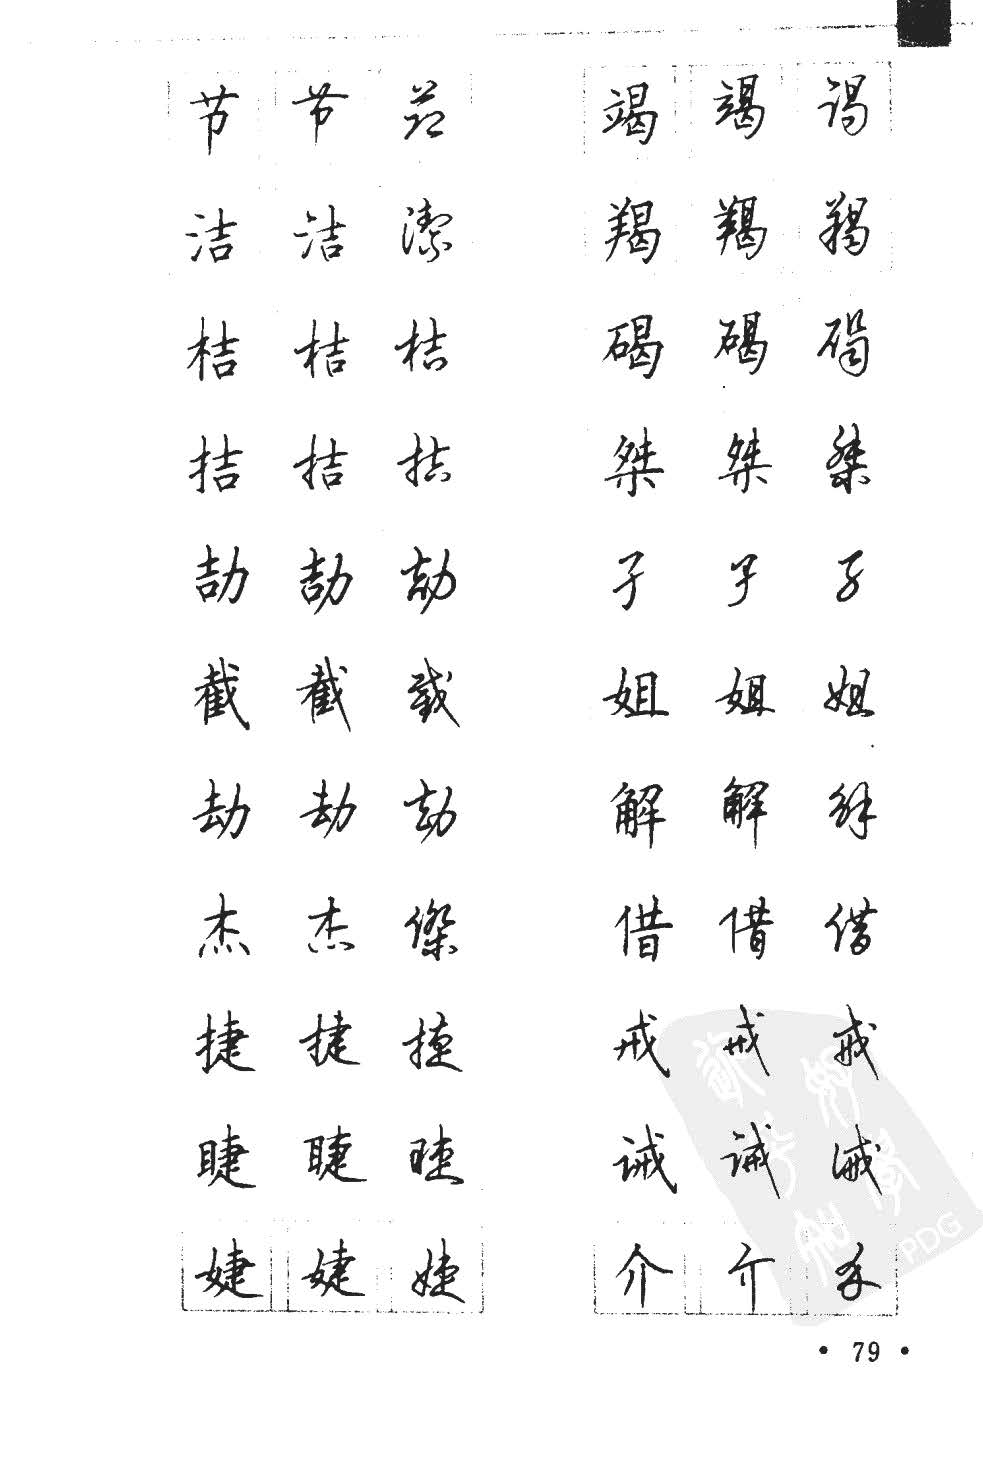 节 节 节 竭 竭 竭
洁 洁 潔 羯 羯 羯
桔 桔 桔 碣 碣 碣
拮 拮 拮 桀 桀 桀
劼 劼 劼 孑 孑 孑
截 截 截 姐 姐 姐
劫 劫 劫 解 解 解
杰 杰 傑 借 借 借
捷 捷 捷 戒 戒 戒
睫 睫 睫 诫 诫 诫
婕 婕 婕 介 介 介
PDG
• 79 •